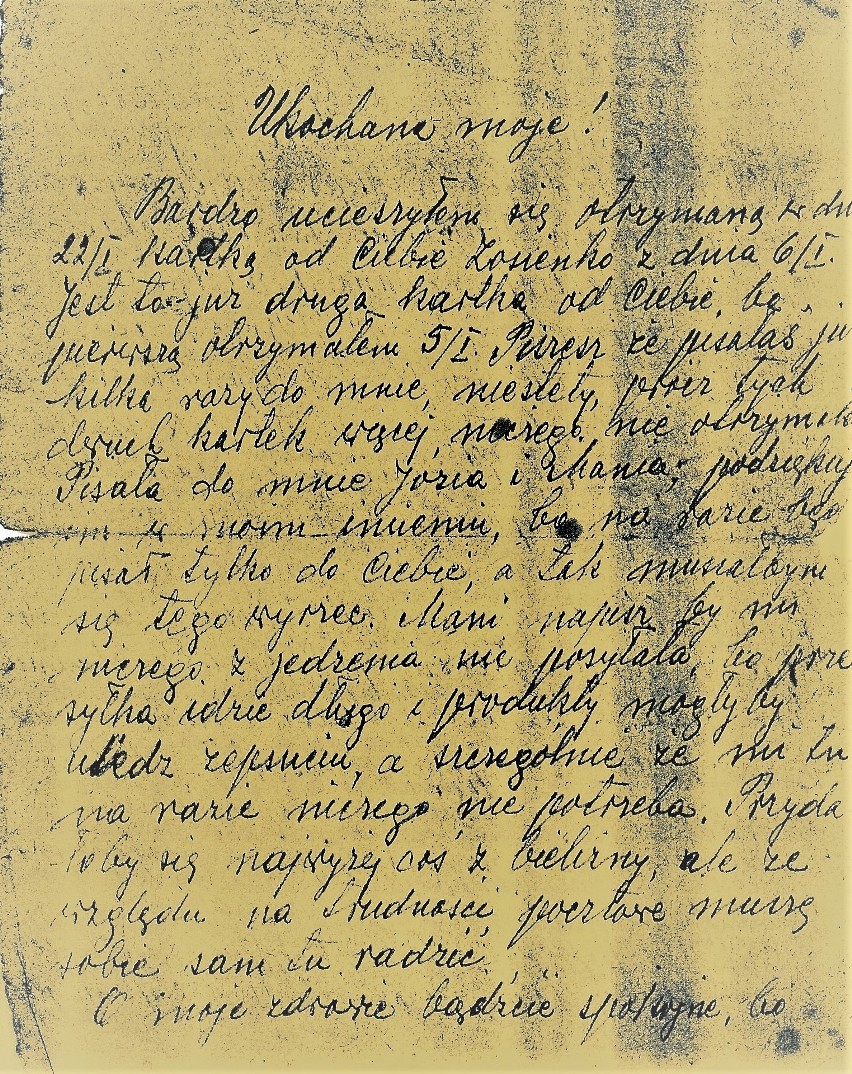 Ukochane moje!
Bardzo ucieszyłem się otrzymaną w dn
22/I kartką od Ciebie Zosieńko z dnia 6/I.
Jest to już druga kartka od Ciebie, bo
pierwszą otrzymałem 5/I. Piszesz że pisałaś ju
kilka razy do mnie, niestety, prócz tych
dwuch kartek więcej niczego nie otrzymał
Pisała do mnie Józia i Mania, podziękuj
im w moim imieniu, bo na razie będ
pisał tylko do Ciebie, a tak musiałbym
się tego wyrzec. Mani napisz by mi
niczego z jedzenia nie posyłała, bo prze
syłka idzie długo i produkty mogłyby
uledz zepsuciu, a szczególnie że mi tu
na razie niczego nie potrzeba. Przyda
łoby się najwyżej coś z bielizny, ale ze
względu na trudności pocztowe muszę
sobie sam tu radzić.
O moje zdrowie bądźcie spokojne, bo